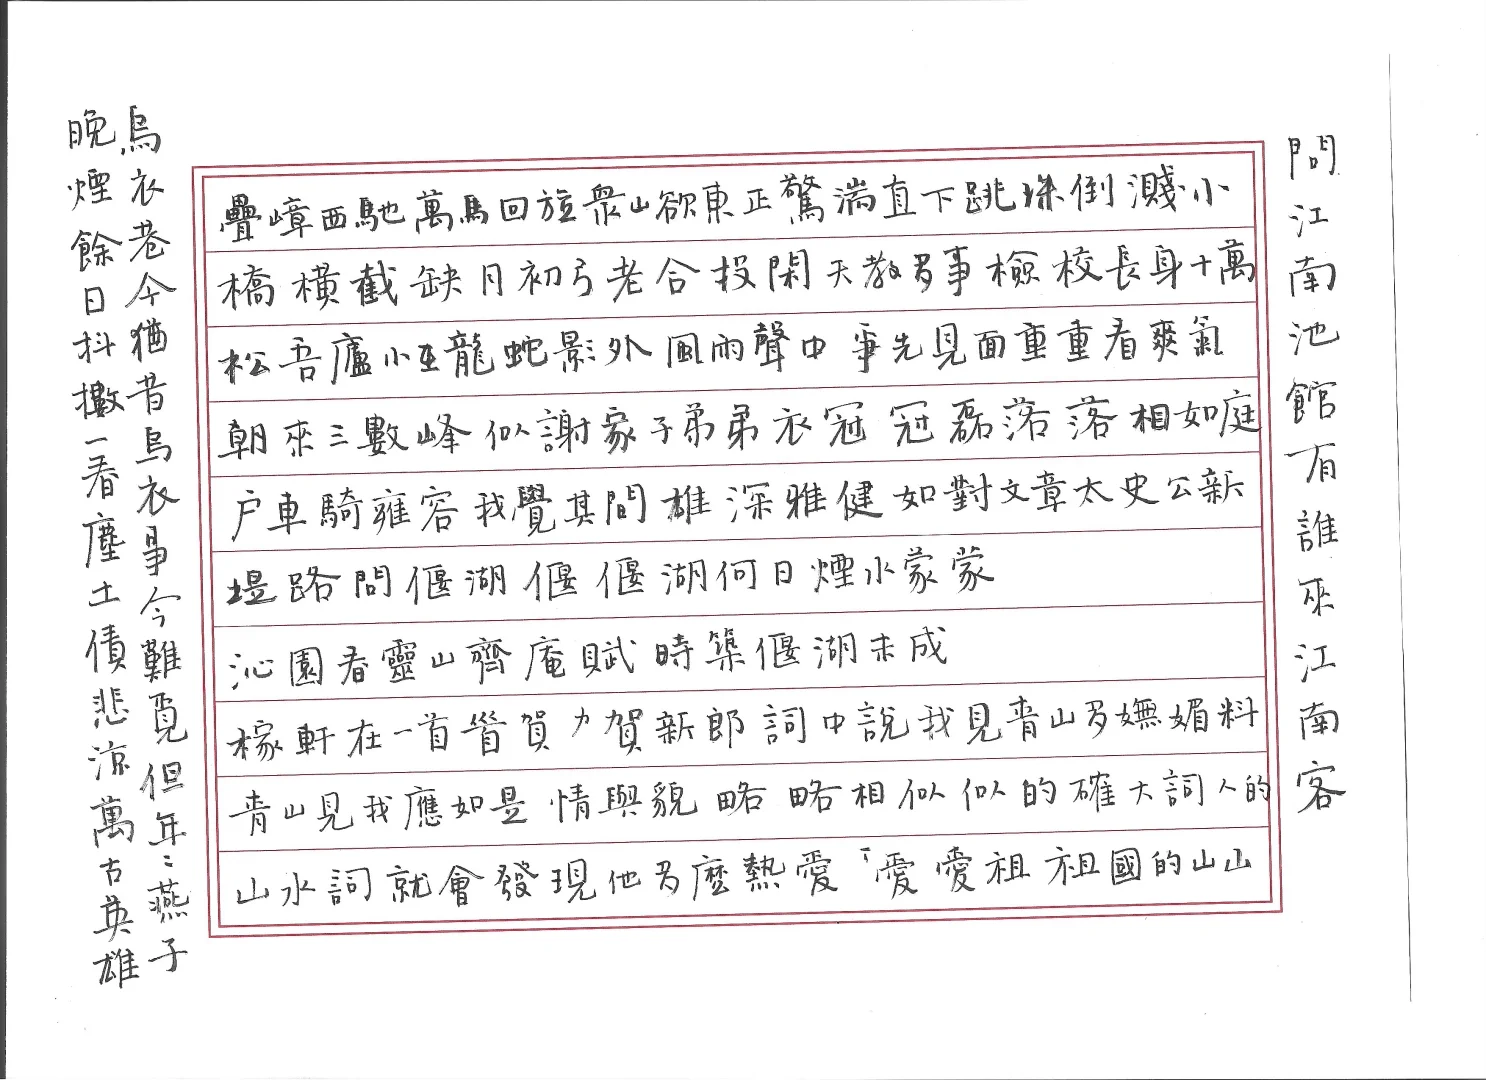 問江南池館有誰來江南客
疊嶂西馳萬馬回旋衆山欲東正驚湍直下跳珠倒濺小
橋橫截缺月初弓老合投閑天教多事檢校長身十萬
松吾廬小在龍蛇影外風雨聲中爭先見面重重看爽氣
朝來三數峰似謝家子弟弟衣冠冠磊落落相如庭
户車騎雍容我覺其間雄深雅健如對文章太史公新
堤路問偃湖偃偃湖何日煙水蒙蒙
沁園春靈山齊庵賦時築偃湖未成
稼軒在一首賀賀新郎詞中說我見青山多嫵媚料
青山見我應如是情與貌略略相似似的確大詞人的
山水詞就會發現他多麼熱愛愛愛祖祖國的山山
烏衣巷今猶昔烏衣事今難覓但年年燕子
晚煙餘日抖擻一春塵土債悲涼萬古英雄